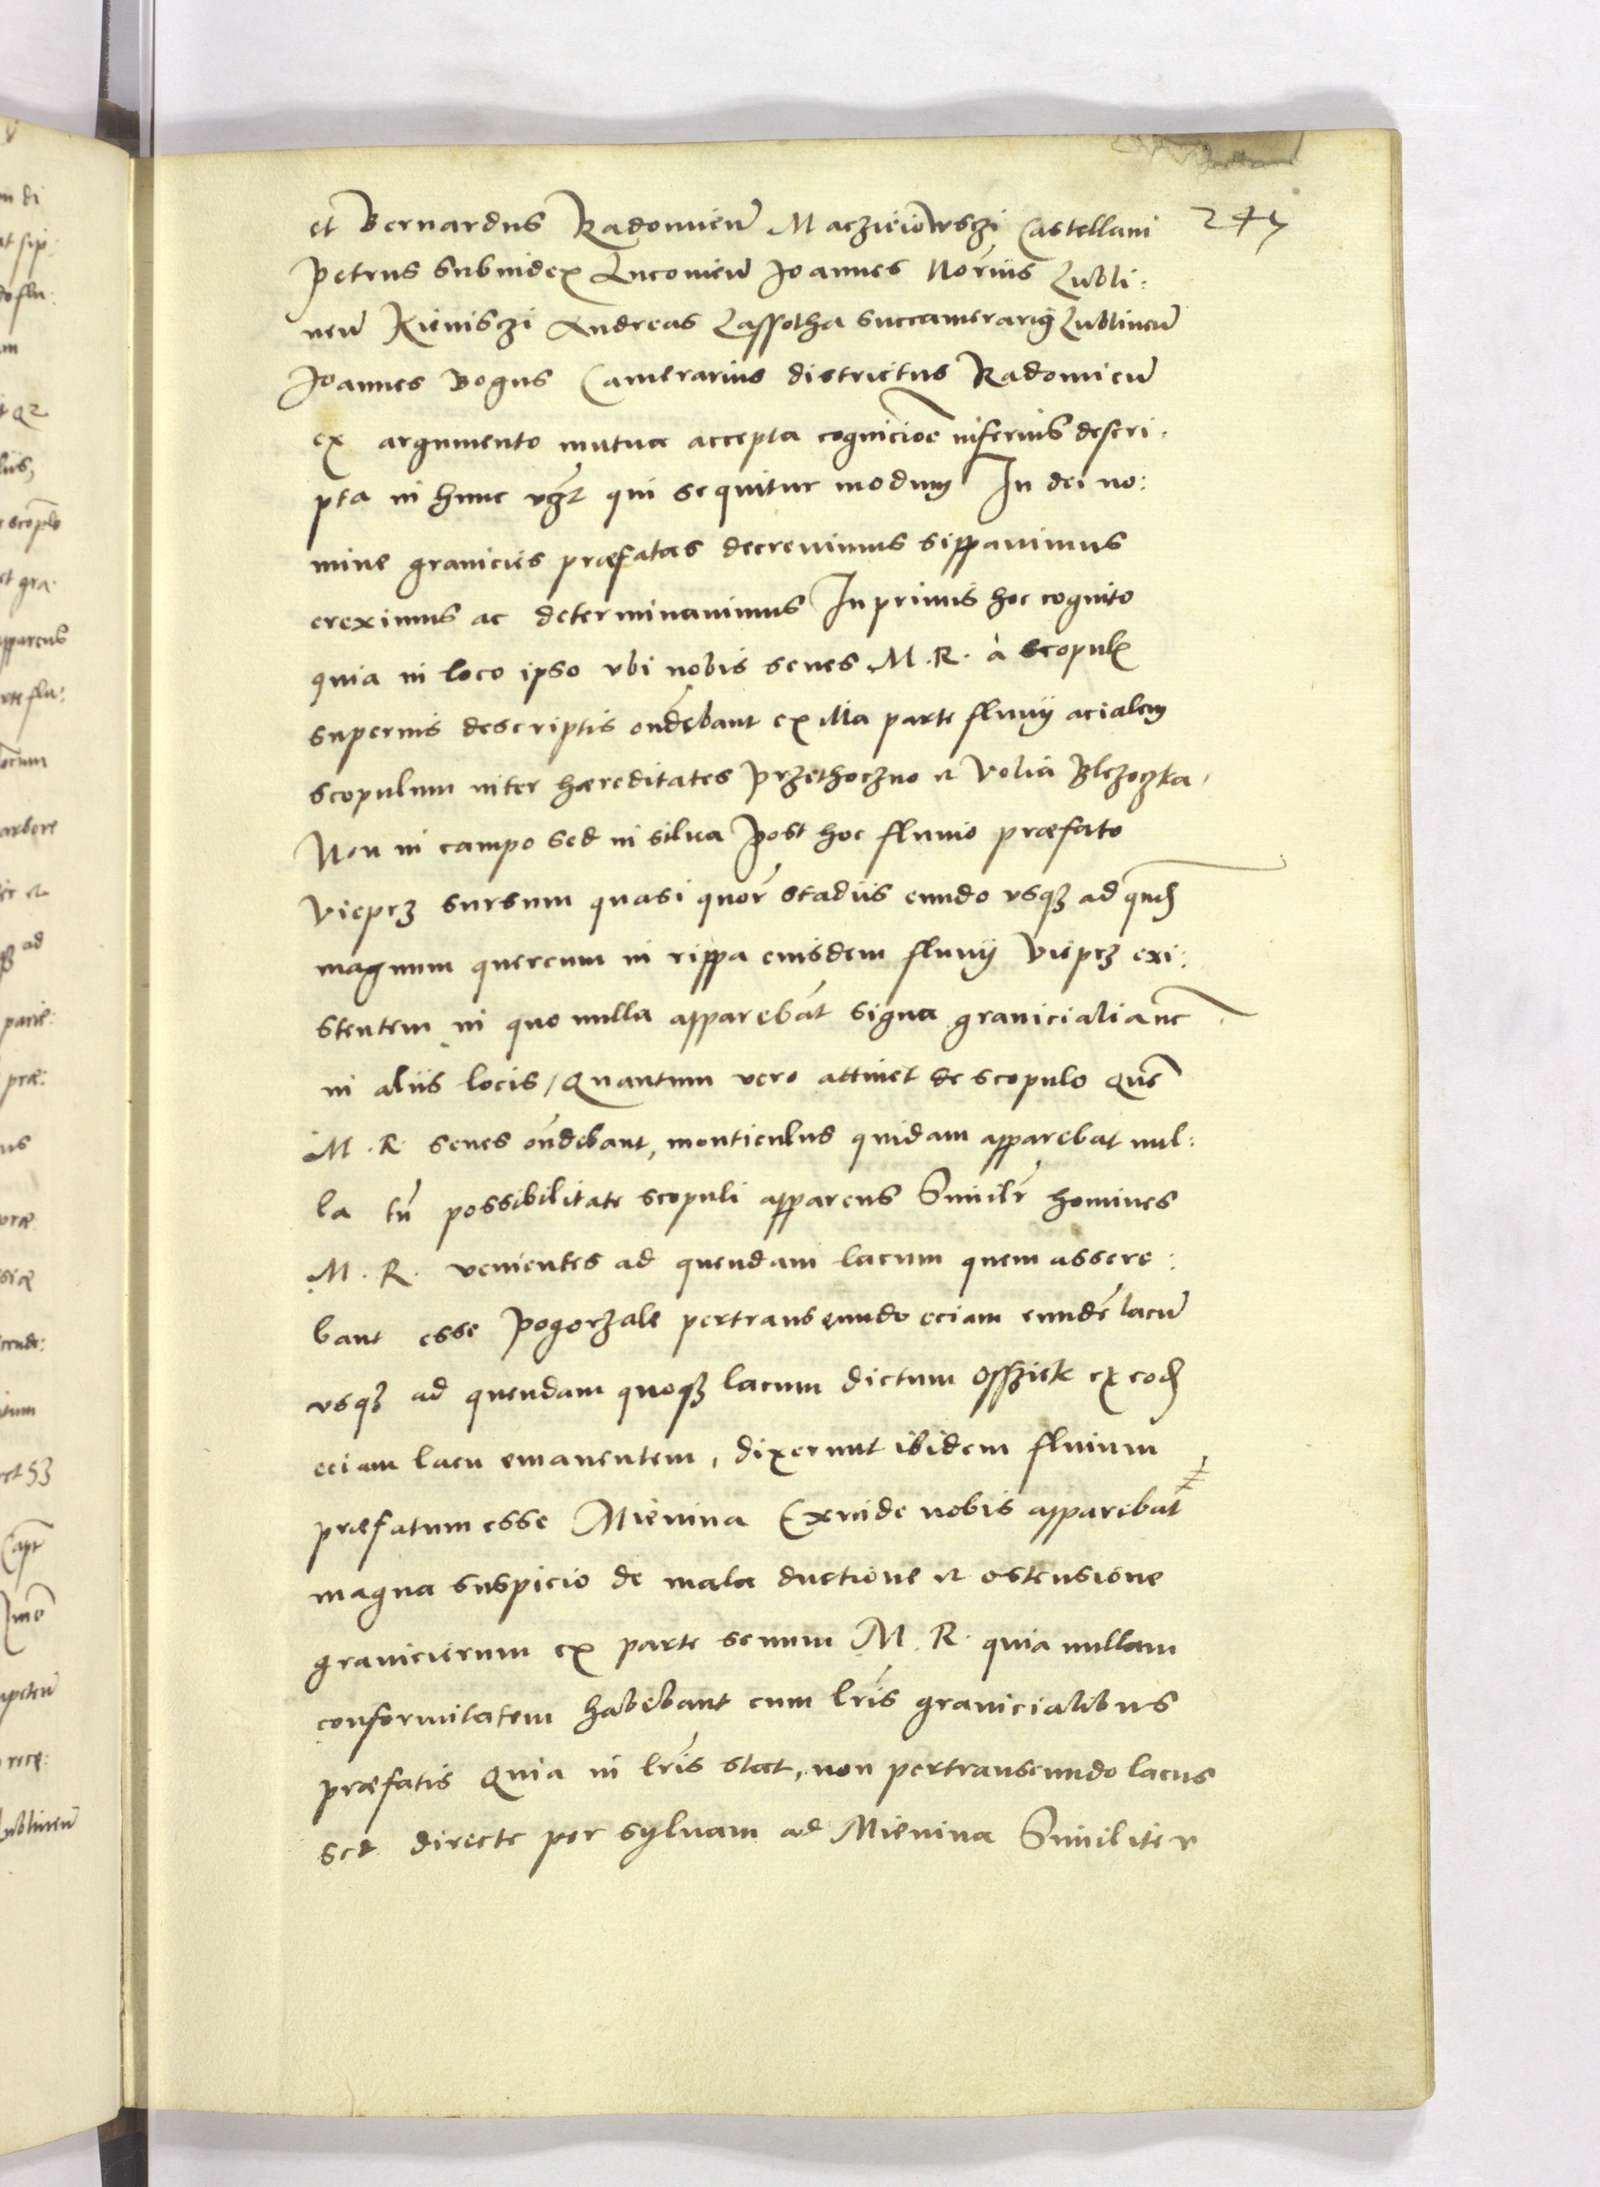 et Bernardus Radomieñ Macziejowszi Castellani 245
Petrus subiudex Lucorieñ Joannes Norius Lubli:
neñ Kieniszi Andreas Lassotha succamerariꝯ Lublineñ
Joannes Bogus Camerarius districtus Radomieñ
ex argumento mutua accepta cognicioē inferius descri:
pta in hunc vgt qui sequitur modum In dei no:
mine granicies præfatas decreuimus sippauimus
ereximus ac determinauimus Inprimis hoc cognito
quia in loco ipso vbi nobis senes M. R. à scopulꝭ
superius descriptis ondēbant ex illa parte fluuij acialem
scopulum inter hæreditates Przethoczno et Volia Blizoczka,
Non in campo sed in silua Post hoc fluuio præfato
Vieprz sursum quasi quor̄ stadiis eundo vsqꝫ ad qnđ
magnum quercum in rippa eiusdem fluuij Vieprz exi:
stentem in quo nulla apparebāt signa granicialia nc̄
in aliis locis / Quantum vero attinet de scopulo quē
M. R. senes ondēbant, monticulus quidam apparebat nul:
la tn̄ possibilitate scopuli apparens Similr̄ homines
M. R. venientes ad quendam lacum quem assere:
bant esse Pogorzale pertranseundo eciam eundē lacū
vsqꝫ ad quendam quoqꝫ lacum dictum Osszick ex eodꝫ
eciam lacu emanentem, dixerunt ibidem fluium
præfatum esse Mienina Exinde nobis apparebāt
magna suspicio de mala ductione et ostensione
granicierum ex parte senum M. R. quia nullam
conformitatem habebant cum lr̄is granicialibus
præfatis Quia in lr̄is stat, non pertranseundo lacus
sed directe per syluam ad Mienina Similiter